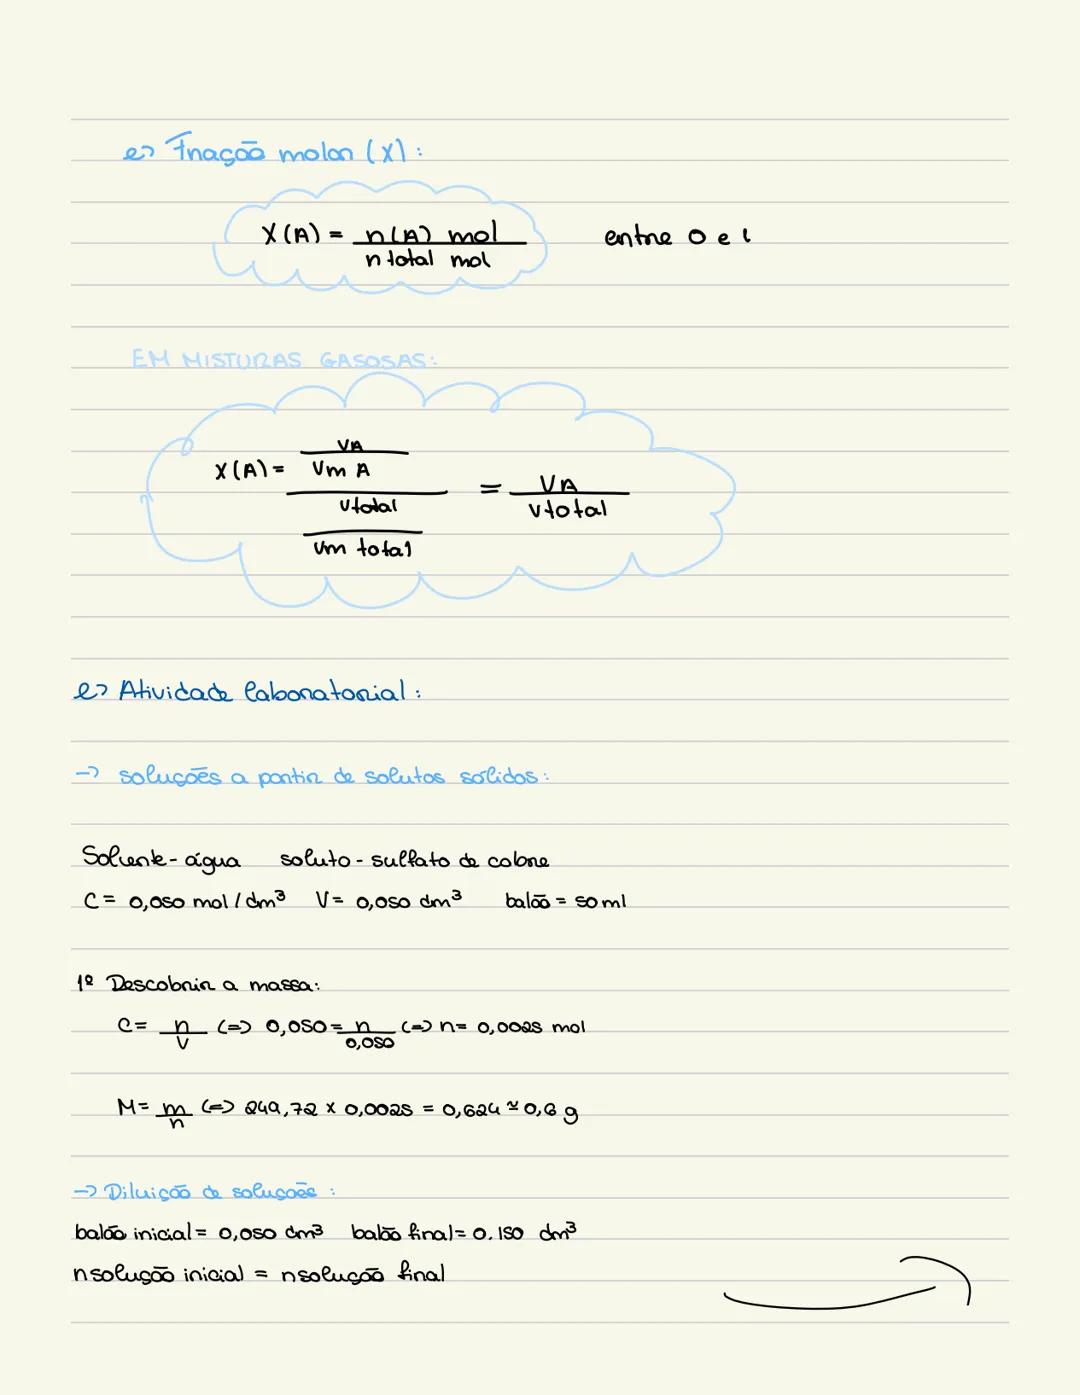 ↳ Fração molar (X):
X(A) = n(A) mol / n total mol entre 0 e 1
EM MISTURAS GASOSAS:
X(A) = (VA / Vm A) / (Vtotal / Vm total) = VA / Vtotal
↳ Atividade laboratorial:
→ soluções a partir de solutos sólidos:
Solvente - água soluto - sulfato de cobre
C = 0,050 mol/dm³ V = 0,050 dm³ balão = 50 ml
1º Descobrir a massa:
C = n/V (=) 0,050 = n/0,050 (=) n = 0,0025 mol
M = m/n (=) 249,72 × 0,0025 = 0,624 ≃ 0,6 g
→ Diluição de soluções:
balão inicial = 0,050 dm³ balão final = 0.150 dm³
n solução inicial = n solução final